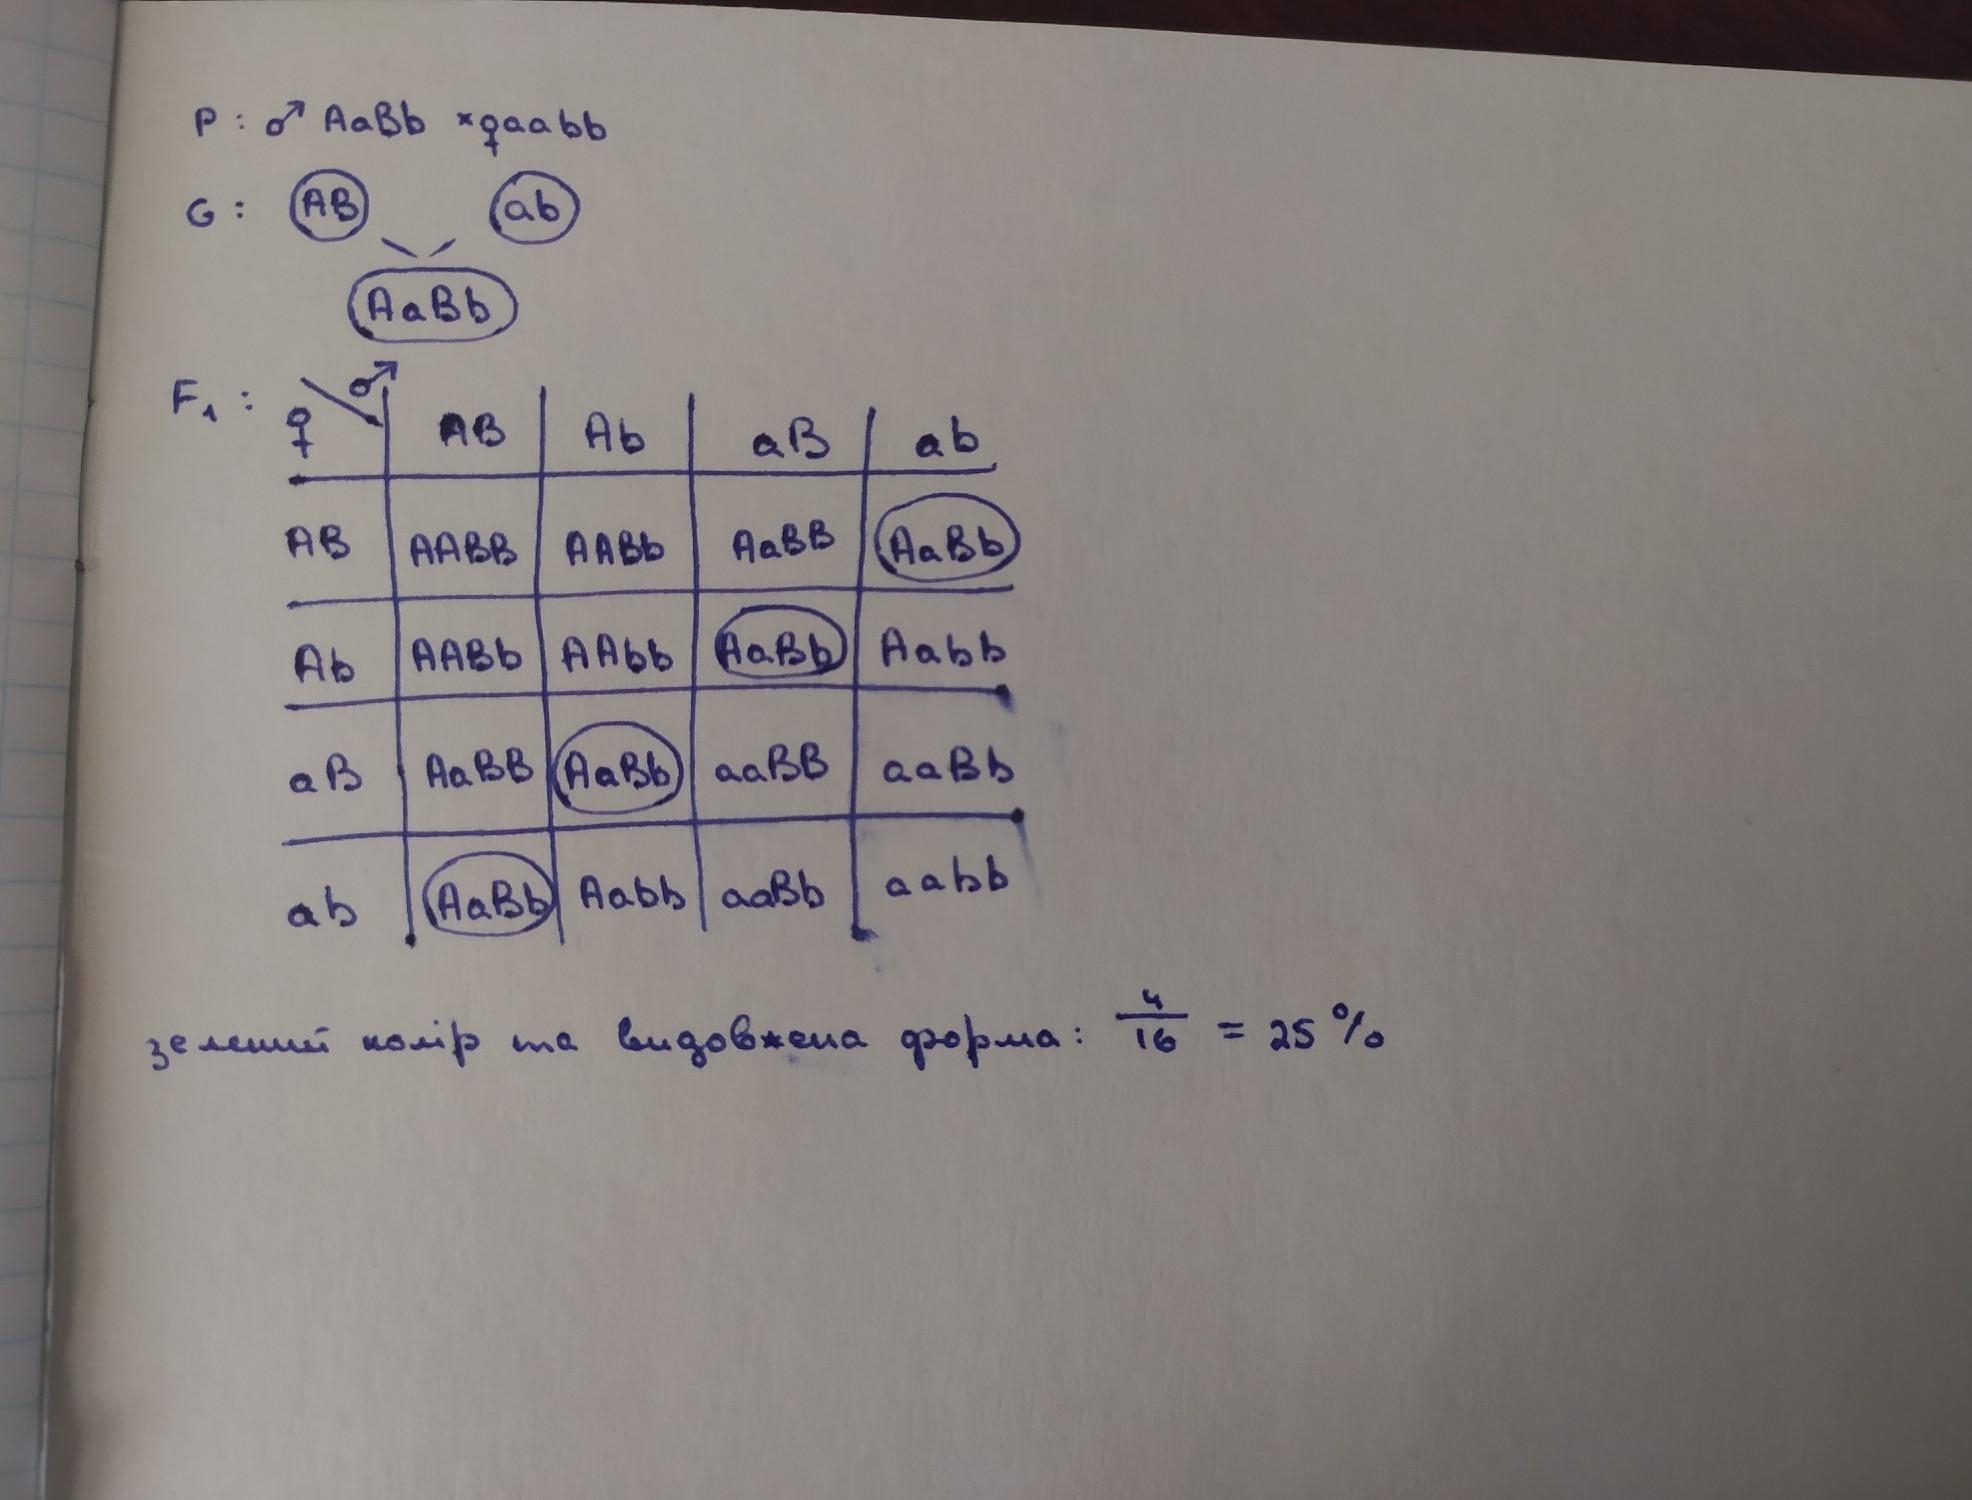 P: ♂ AaBb × ♀aabb
G: AB ab
AaBb
F₁: ♀ ♂ AB Ab aB ab
AB AABB AABb AaBB AaBb
Ab AABb AAbb AaBb Aabb
aB AaBB AaBb aaBB aaBb
ab AaBb Aabb aaBb aabb
зелений колір та видовжена форма: 4/16 = 25%